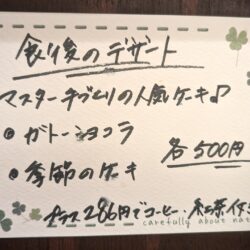 食後のデザート
マスター手づくりの人気ケーキ♪
● ガトーショコラ
各500円
● 季節のケーキ
プラス286円でコーヒー・和茶付
carefully about nat